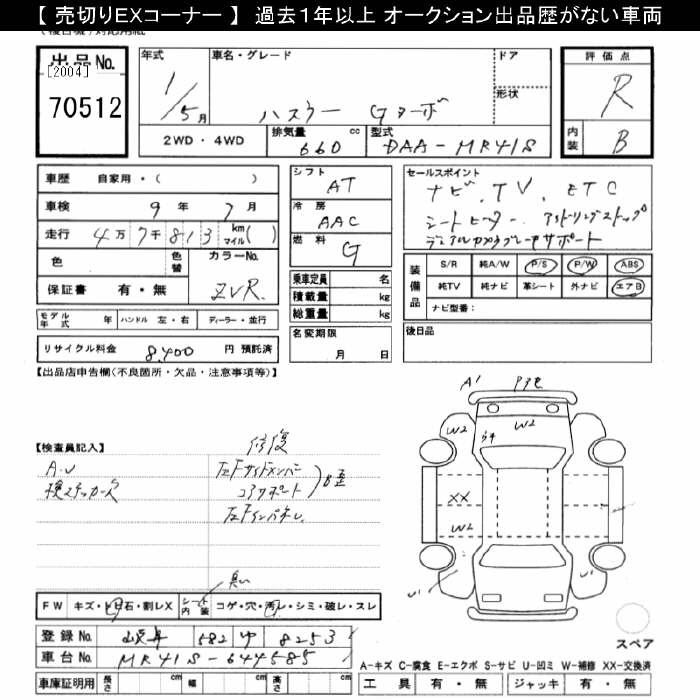 【 売切りEXコーナー 】 過去1年以上 オークション出品歴がない車両
出品No. [2004] 70512
年式 1/5月
車名・グレード ハスラー Gターボ
ドア
形状
評価点 R
内装 B
2WD・4WD
排気量 660 cc
型式 DAA-MR41S
車歴 自家用・( )
車検 9年7月
走行 4万7千813 km マイル( )
色 色替 カラーNo. ZVR
保証書 有・無
モデル年式 年 ハンドル 左・右 ディーラー・並行
リサイクル料金 8,400 円 預託済
シフト AT
冷房 AAC
燃料 G
乗車定員 名
積載量 kg
総重量 kg
名変期限 月 日
セールスポイント
ナビ、TV、ETC
シートヒーター、アイドリングストップ
デュアルカメラブレーキサポート
装備品 S/R 純A/W P/S P/W ABS
純TV 純ナビ 革シート 外ナビ エアB
ナビ型番:
後日品
【出品店申告欄(不良箇所・欠品・注意事項等)】
【検査員記入】
修復
A・U
検ステッカー欠
左Fサイドメンバー
コアサポート
左Fインパネし
A1
W2
W2
XX
W2
U1
U1
臭い
FW キズ・トビ石・割レX シート内装 コゲ・穴・汚レ・シミ・破レ・スレ
登録No. 岐阜 582 ゆ 8253
車台No. MR41S-644585
車庫証明用 長さ cm 幅 cm 高さ cm
スペア
A-キズ C-腐食 E-エクボ S-サビ U-凹ミ W-補修 XX-交換済
工具 有・無 ジャッキ 有・無